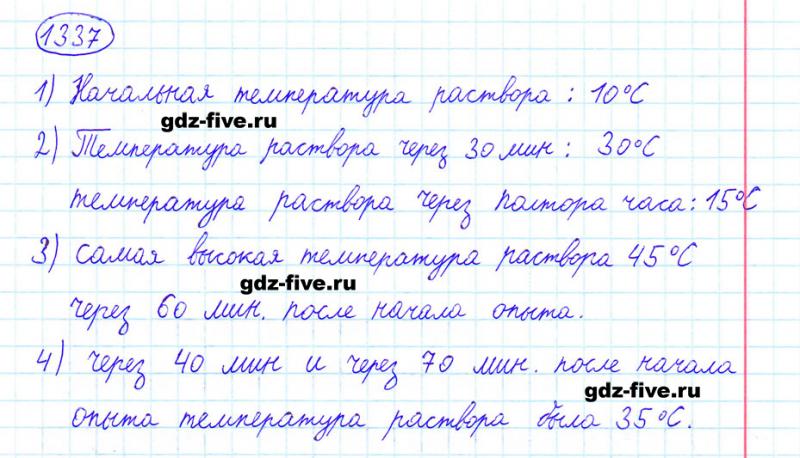 1337
1) Начальная температура раствора: 10°С
gdz-five.ru
2) Температура раствора через 30 мин: 30°С
температура раствора через полтора часа: 15°С
3) самая высокая температура раствора 45°С
gdz-five.ru
через 60 мин. после начала опыта.
4) через 40 мин и через 70 мин. после начала
gdz-five.ru
опыта температура раствора была 35°С.